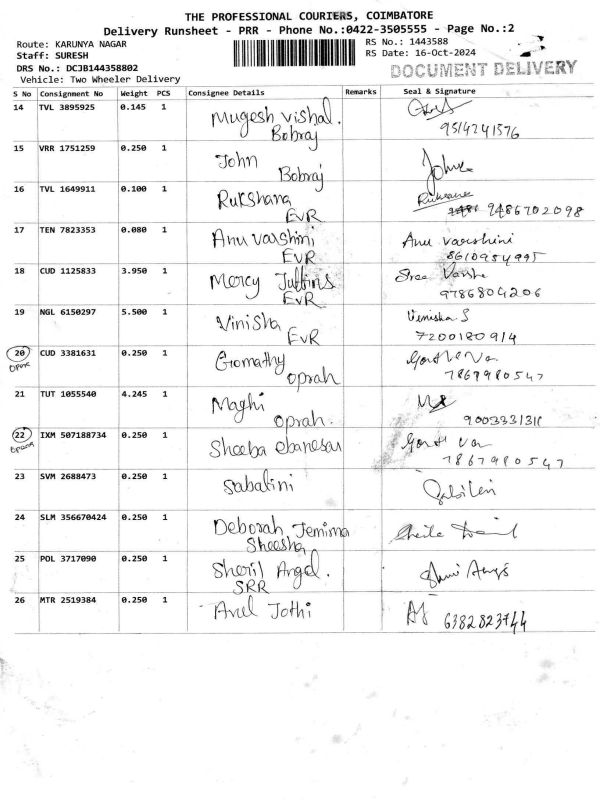 THE PROFESSIONAL COURIERS, COIMBATORE
Delivery Runsheet - PRR - Phone No.:0422-3505555 - Page No.:2
Route: KARUNYA NAGAR
RS No.: 1443588
Staff: SURESH
RS Date: 16-Oct-2024
DRS No.: DCJB144358802
DOCUMENT DELIVERY
Vehicle: Two Wheeler Delivery
S No Consignment No Weight PCS Consignee Details Remarks Seal & Signature
14 TVL 3895925 0.145 1 Mugesh Vishal.
Bobraj 9514241576
15 VRR 1751259 0.250 1 John
Bobraj
16 TVL 1649911 0.100 1 Rukshana Ruksana
EVR 9486702098
17 TEN 7823353 0.080 1 Anu varshini Anu varshini
EVR 8610954995
18 CUD 1125833 3.950 1 Mercy
EVR 9786804206
19 NGL 6150297 5.500 1 Vinisha
EVR 7200180914
20 CUD 3381631 0.250 1 Gomathy
oprah 7867980547
21 TUT 1055540 4.245 1 Maghi
oprah. 9003331311
22 IXM 507188734 0.250 1 Sheeba ebanesar
7867980547
23 SVM 2688473 0.250 1 Sabalini
24 SLM 356670424 0.250 1 Deborah Jemima
Sheesha
25 POL 3717090 0.250 1 Sheril Angel.
SRR
26 MTR 2519384 0.250 1 Arul Jothi AJ 6382823744